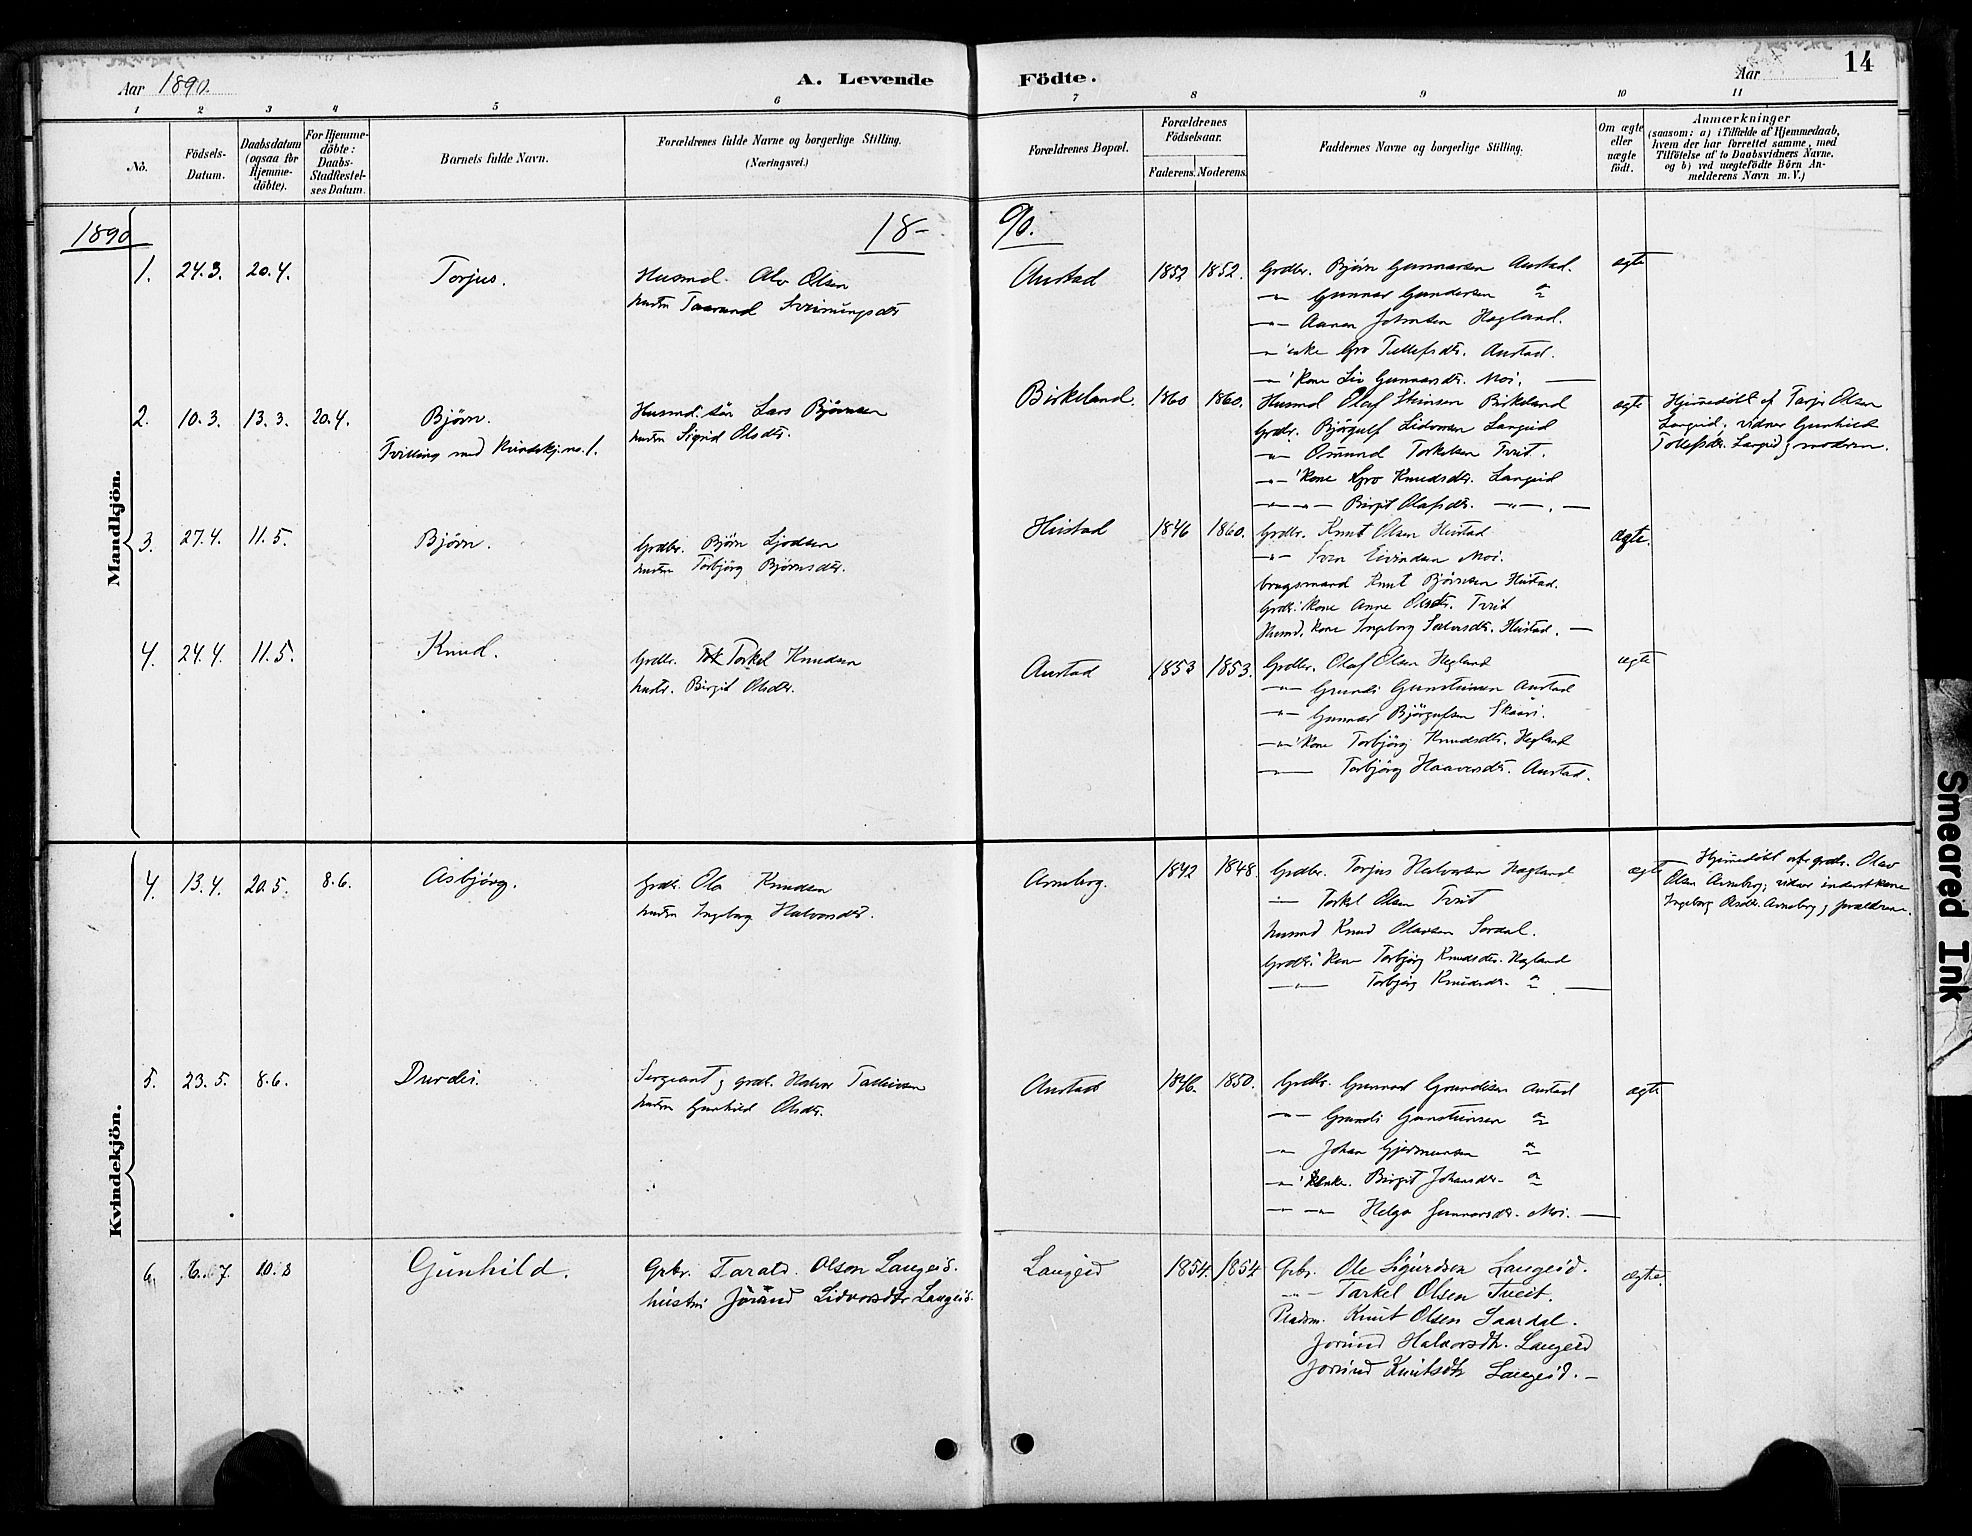 Aar 1890.
A. Levende Födte.
Aar
14
1
2
3
4
5
6
7
8
9
10
11
No.
Födsels-Datum.
Daabsdatum (ogsaa for Hjemmedöbte).
For Hjemmedöbte: Daabs-Stadfæstelses Datum.
Barnets fulde Navn.
Forældrenes fulde Navne og borgerlige Stilling.
(Næringsvei.)
Forældrenes Bopæl.
Forældrenes Födselsaar.
Faderens. Moderens.
Faddernes Navne og borgerlige Stilling.
Om ægte eller uægte födt.
Anmærkninger
(saasom: a) i Tilfælde af Hjemmedaab, hvem der har forrettet samme, med Tilföielse af to Daabsvidners Navne, og b) ved uægtefödte Börn Anmelderens Navn m. V.)
1890
18-90.
Mandkjön.
1. 24.3. 20.4. Torjus.
Husmd. Olv Olsen
hustru Taarand Sveinungsdtr
Austad 1852 1852.
Grdbr. Bjørn Gunnarsen Austad.
-"- Gunnar Gundersen "
-"- Aanen Johnsen Hagland.
-"- enke Gro Tellefsdtr. Austad.
-"- Kone Liv Gunnarsdtr. Moi.
ægte
2. 10.3. 13.3. 20.4. Bjørn.
Tvilling med Kvindekj. no. 1.
Husmd. søn Lars Bjørnsen
hustru Sigrid Olsdtr.
Birkeland. 1860 1860.
Husmd Olaf Birkeland
Grdbr. Bjørgulf Lidvorsen Langeid
-"- Osmund Torkelsen Tveit.
-"- Kone Gro Knudsdtr. Langeid
-"- -"- Birgit Olafsdtr. -"-.
ægte
Hjemmedøbt af Tarjei Olsen
Langeid, vidner Gunhild
Tollefsdtr. Langeid og moderen.
3. 27.4. 11.5. Bjørn.
Grdbr. Bjørn Ljodsen
hustru Torbjørg Bjørnsdtr.
Hustad 1846 1860.
Grdbr. Knut Olsen Hustad
-"- Sven Eivindsen Moi.
brugsmand Knut Bjørnsen Hustad.
Grdbr. Kone Anne Olsdtr. Tveit
Husmd. Kone Ingeborg Hustad.
ægte.
4. 24.4. 11.5. Knud.
Grdbr. Torkel Knudsen
hustr. Birgit Olsdtr.
Austad 1853 1853.
Grdbr. Olaf Olsen Hegland
-"- Grundi Gunsteinsen Austad
-"- Gunnar Bjørgufsen Skaari.
-"- Kone Torbjørg Knudsdtr. Hegland
-"- Torbjørg Haavorsdtr. Austad.
ægte
Kvindekjön.
4. 13.4. 20.5. 8.6. Asbjørg.
Grdbr. Ola Knudsen
hustru Ingeborg Halvorsdtr.
Arneberg. 1842 1848.
Grdbr. Torjus Halvorsen Hagland
-"- Torkel Olsen Tveit
husmd Knud Olavsen Sordal.
Grdbr. Kone Torbjørg Knudsdtr. Hagland
-"- Torbjørg Knudsdtr. "
ægte
Hjemmedøbt af grdbr. Olav
Olsen Arneberg; vidner inderst kone
Ingeborg Olsdtr. Arneberg og forældrene.
5. 23.5. 8.6. Durdei.
Sergeant og grdbr. Halvor Talleivsen
hustru Gunhild Olsdtr.
Austad 1846. 1850.
Grdbr. Gunnar Grundisen Austad
-"- Grundi Gunsteinsen "
-"- Johan Gjermunsen "
-"- enke. Birgit Johansdtr. "
-"- -"- Helga Gunnarsdtr. Moi.
ægte
6. 6.7. 10.8 Gunhild.
Grbr. Tarald Olson Langeid.
hustru Jörand Lidvorsdtr Langeid.
Langeid 1854. 1854
Grbr. Ole Sigurdsen Langeid.
-"- Tarkel Olsen Tveit.
Pladsm. Knut Olsen Saardal.
Jorund Halvorsdtr. Langeid
Jorund Knutsdtr Langeid.
ægte
Smeared Ink